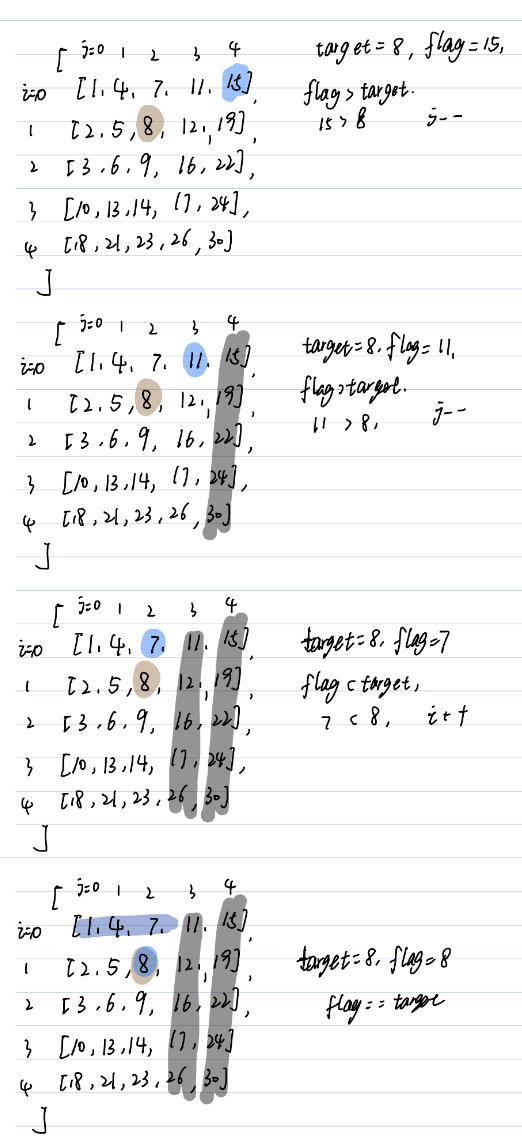 [ j=0 1 2 3 4
i=0 [1, 4, 7, 11, 15],
1 [2, 5, 8, 12, 19],
2 [3, 6, 9, 16, 22],
3 [10, 13, 14, 17, 24],
4 [18, 21, 23, 26, 30]
]
target = 8, flag = 15,
flag > target.
15 > 8 j--
[ j=0 1 2 3 4
i=0 [1, 4, 7, 11, 15],
1 [2, 5, 8, 12, 19],
2 [3, 6, 9, 16, 22],
3 [10, 13, 14, 17, 24],
4 [18, 21, 23, 26, 30]
]
target = 8, flag = 11,
flag > target.
11 > 8, j--
[ j=0 1 2 3 4
i=0 [1, 4, 7, 11, 15],
1 [2, 5, 8, 12, 19],
2 [3, 6, 9, 16, 22],
3 [10, 13, 14, 17, 24],
4 [18, 21, 23, 26, 30]
]
target = 8, flag = 7
flag < target,
7 < 8, i++
[ j=0 1 2 3 4
i=0 [1, 4, 7, 11, 15],
1 [2, 5, 8, 12, 19],
2 [3, 6, 9, 16, 22],
3 [10, 13, 14, 17, 24]
4 [18, 21, 23, 26, 30]
]
target = 8, flag = 8
flag == target